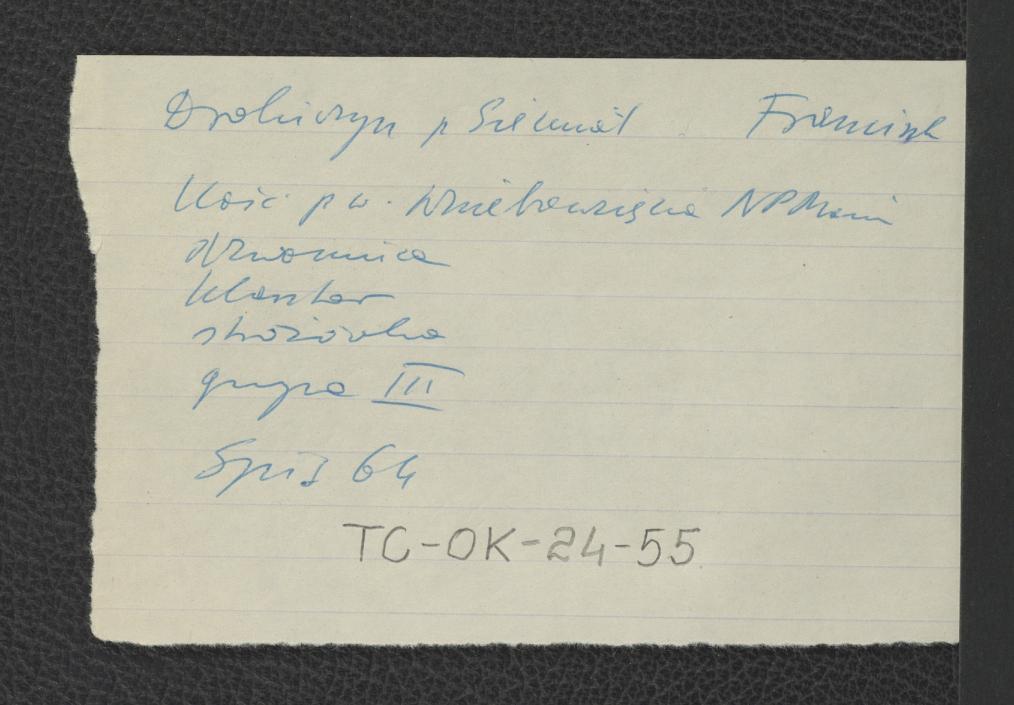 Drohiczyn p Siemiat. Franciszk
Kość. p w. Wniebowzięcia NPMarii
dzwonnica
klasztor
stróżówka
grupa III
Spis 64
TC-OK-24-55